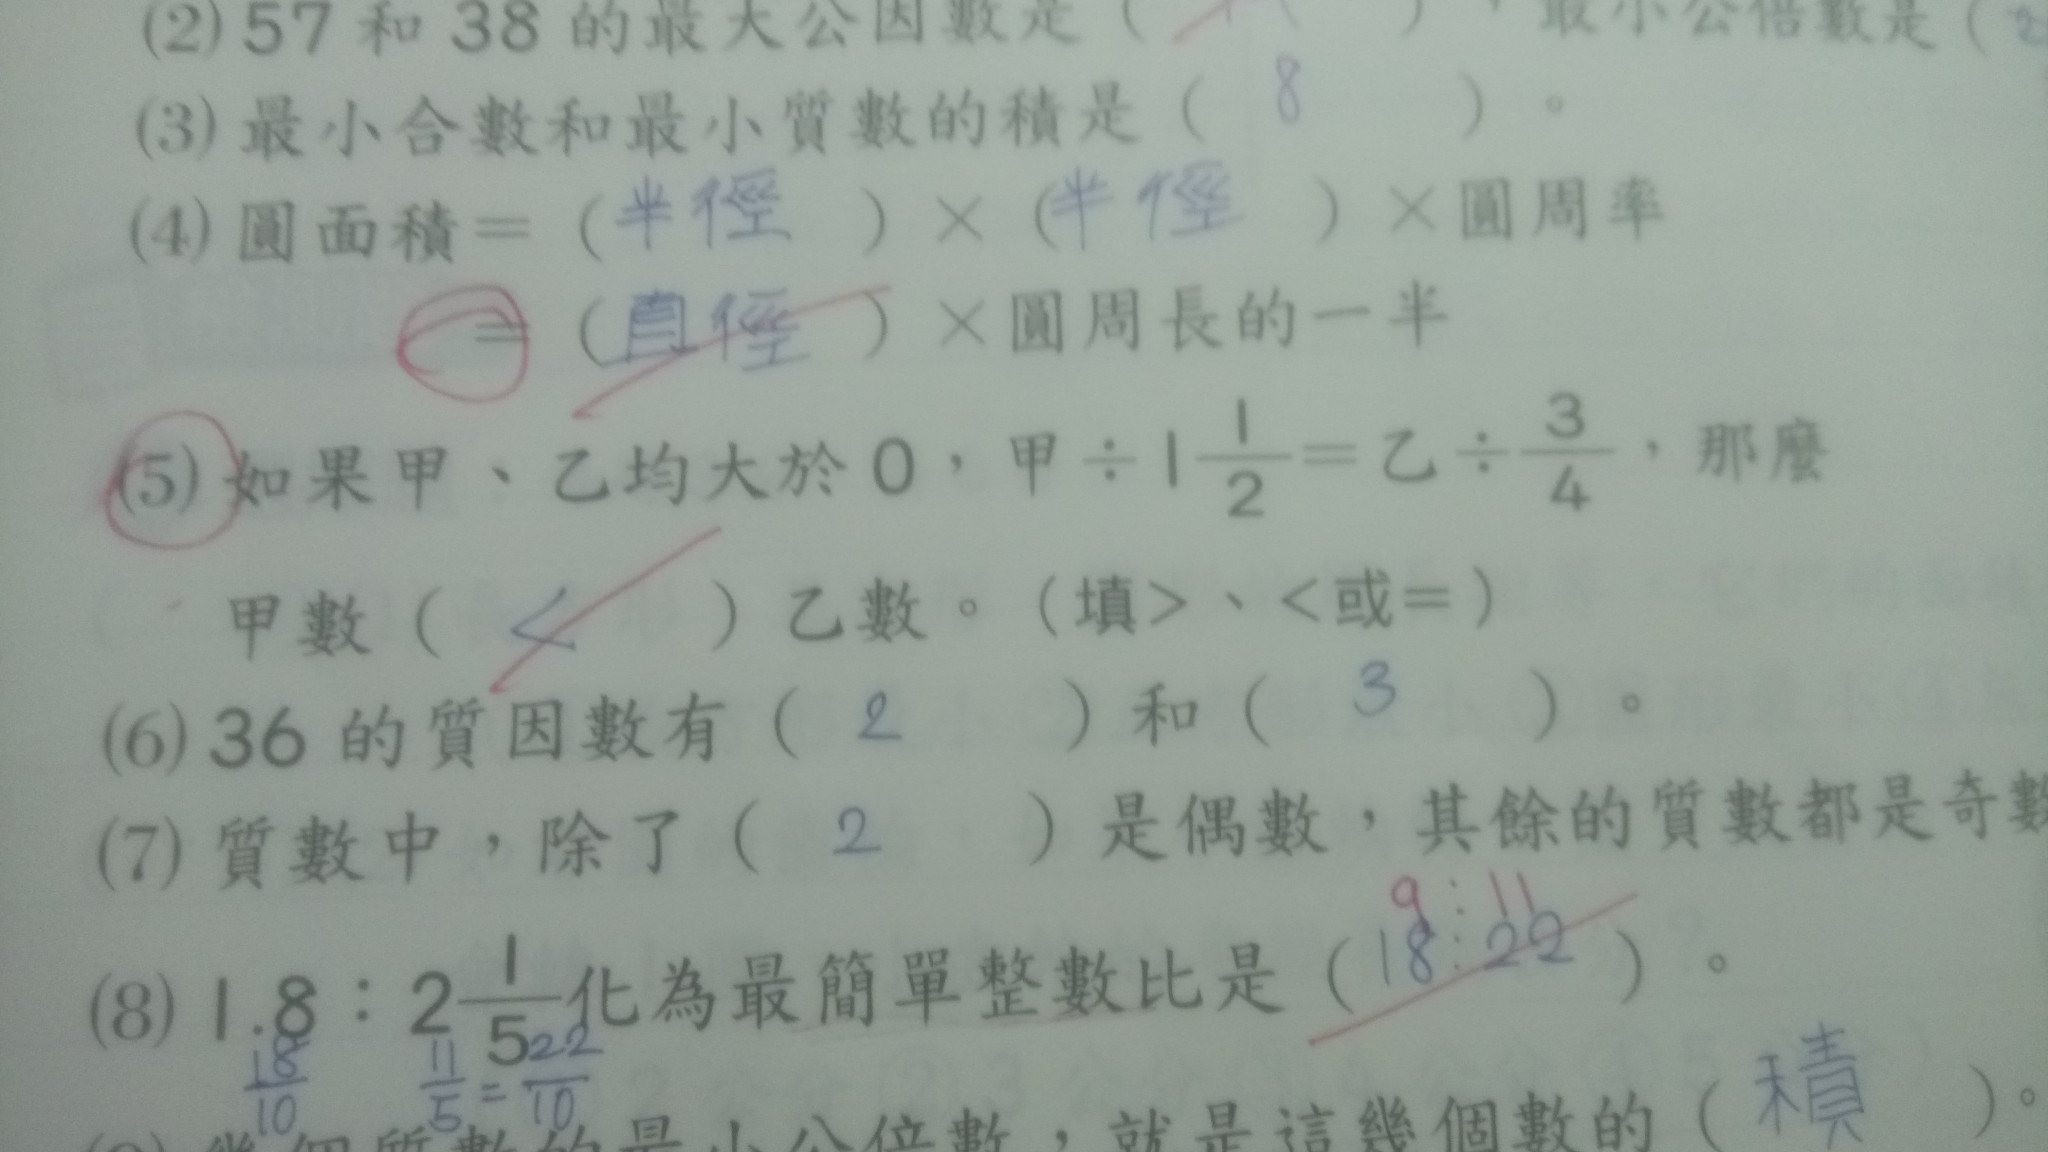 (2) 57 和 38 的最大公因數是（ ），最小公倍數是（
(3) 最小合數和最小質數的積是（ 8 ）。
(4) 圓面積＝（半徑）×（半徑）×圓周率
＝（直徑）×圓周長的一半
(5) 如果甲、乙均大於0，甲÷1 1/2＝乙÷3/4，那麼
甲數（ < ）乙數。（填>、<或＝）
(6) 36 的質因數有（ 2 ）和（ 3 ）。
(7) 質數中，除了（ 2 ）是偶數，其餘的質數都是奇數
9:11
(8) 1.8：2 1/5 化為最簡單整數比是（18:22）。
18/10 11/5 = 22/10
幾個質數的最小公倍數，就是這幾個數的（積）。